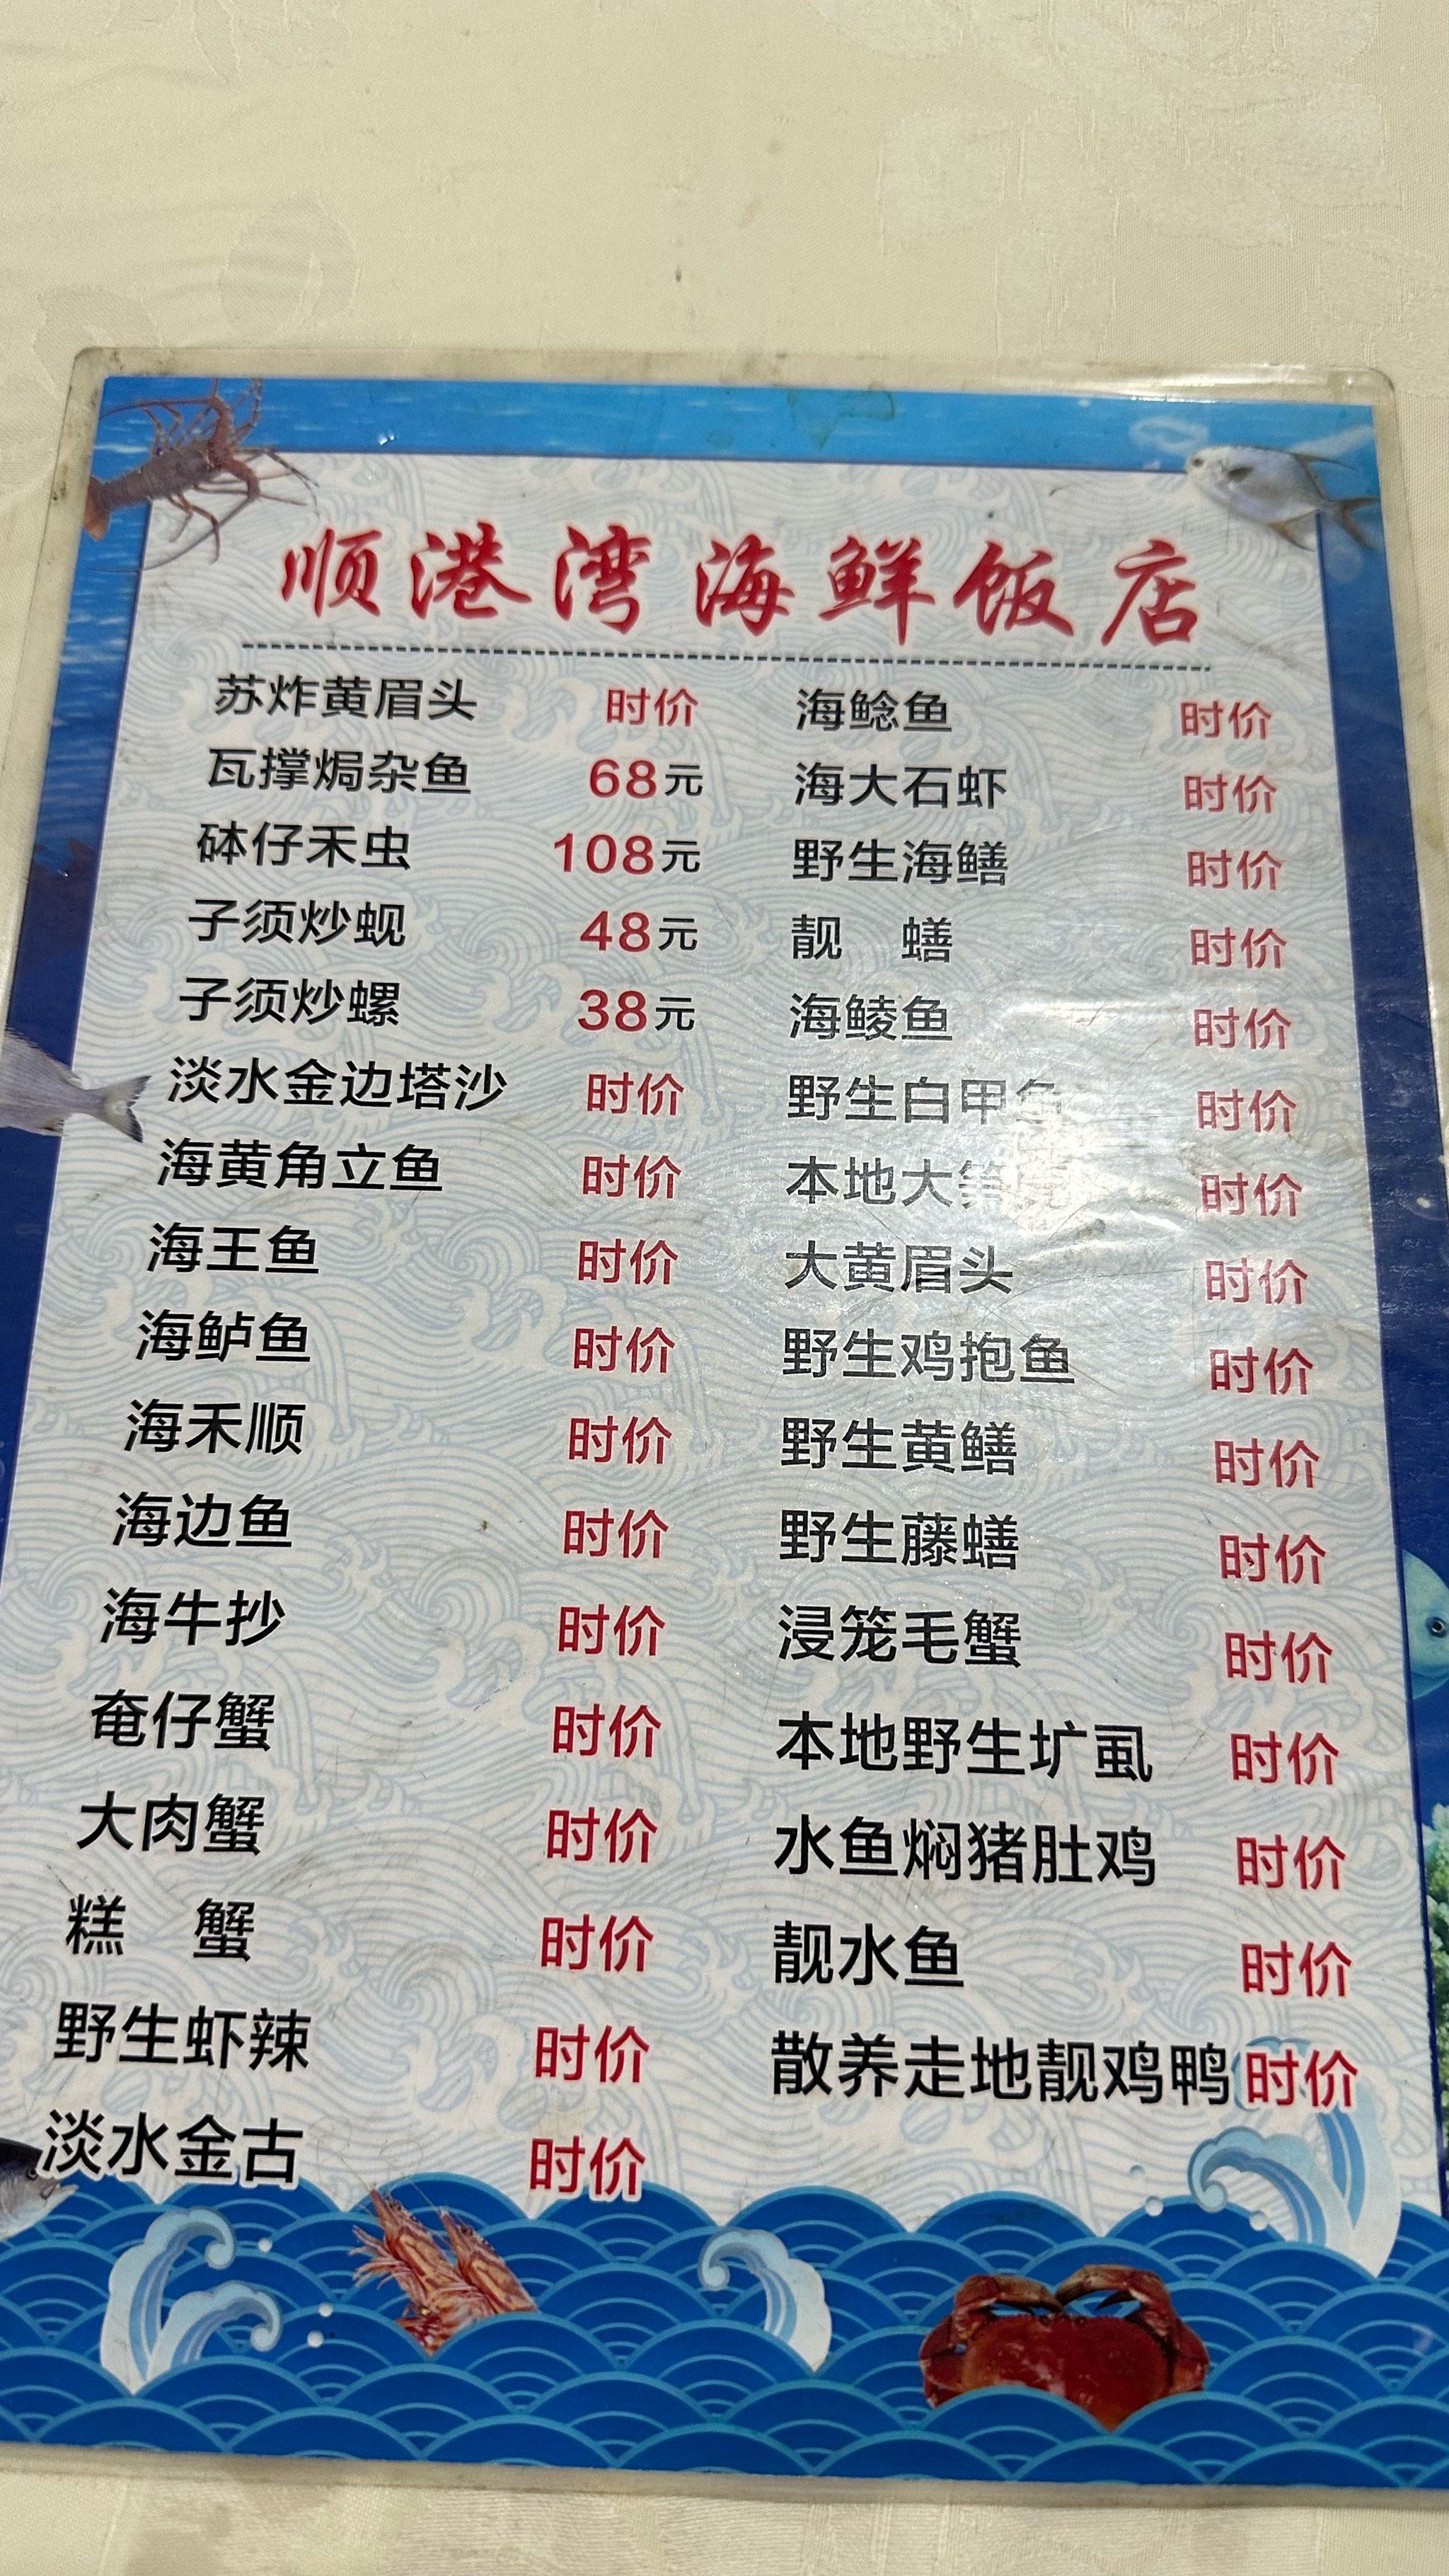 顺港湾海鲜饭店
苏炸黄眉头 时价
瓦撑焗杂鱼 68元
砵仔禾虫 108元
子须炒蚬 48元
子须炒螺 38元
淡水金边塔沙 时价
海黄角立鱼 时价
海王鱼 时价
海鲈鱼 时价
海禾顺 时价
海边鱼 时价
海牛抄 时价
奄仔蟹 时价
大肉蟹 时价
糕 蟹 时价
野生虾辣 时价
淡水金古 时价
海鲶鱼 时价
海大石虾 时价
野生海鳝 时价
靓 蟮 时价
海鲮鱼 时价
野生白甲鱼 时价
本地大 时价
大黄眉头 时价
野生鸡抱鱼 时价
野生黄鳝 时价
野生藤蟮 时价
浸笼毛蟹 时价
本地野生圹虱 时价
水鱼焖猪肚鸡 时价
靓水鱼 时价
散养走地靓鸡鸭 时价